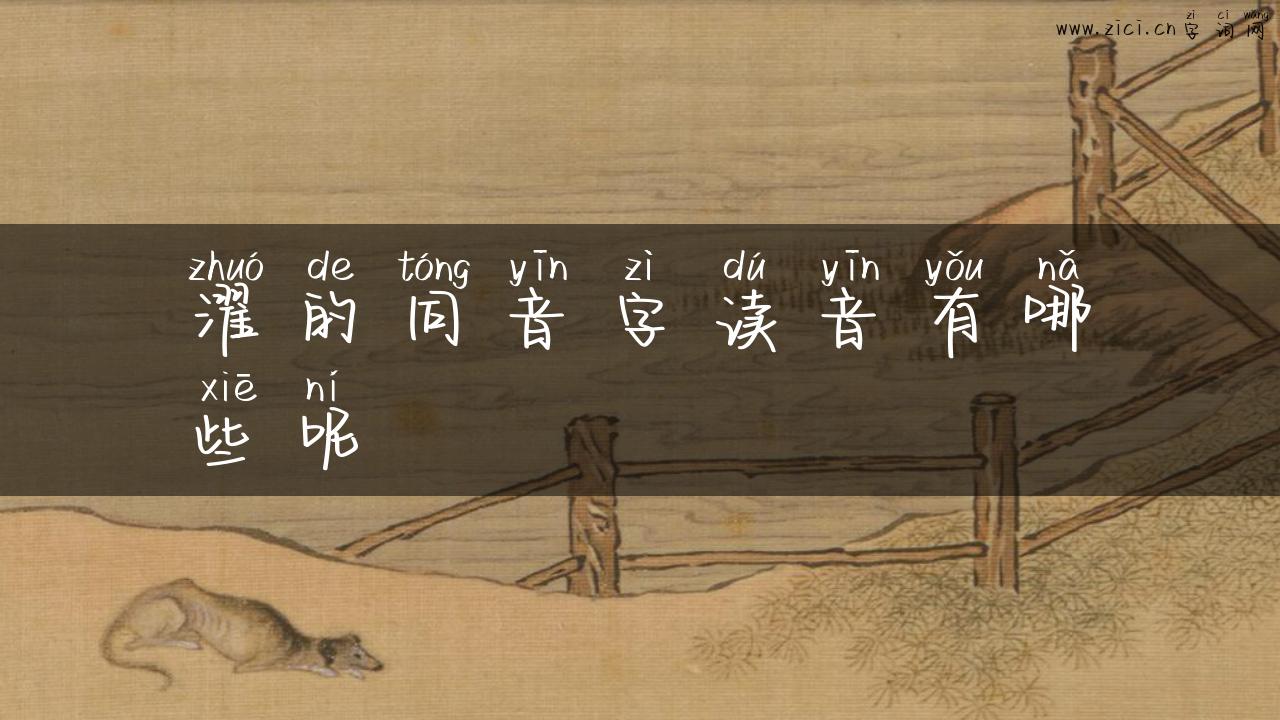 zì cí wǎng
www.zici.cn 字 词 网
zhuó de tóng yīn zì dú yīn yǒu nǎ
濯 的 同 音 字 读 音 有 哪
xiē ní
些 呢